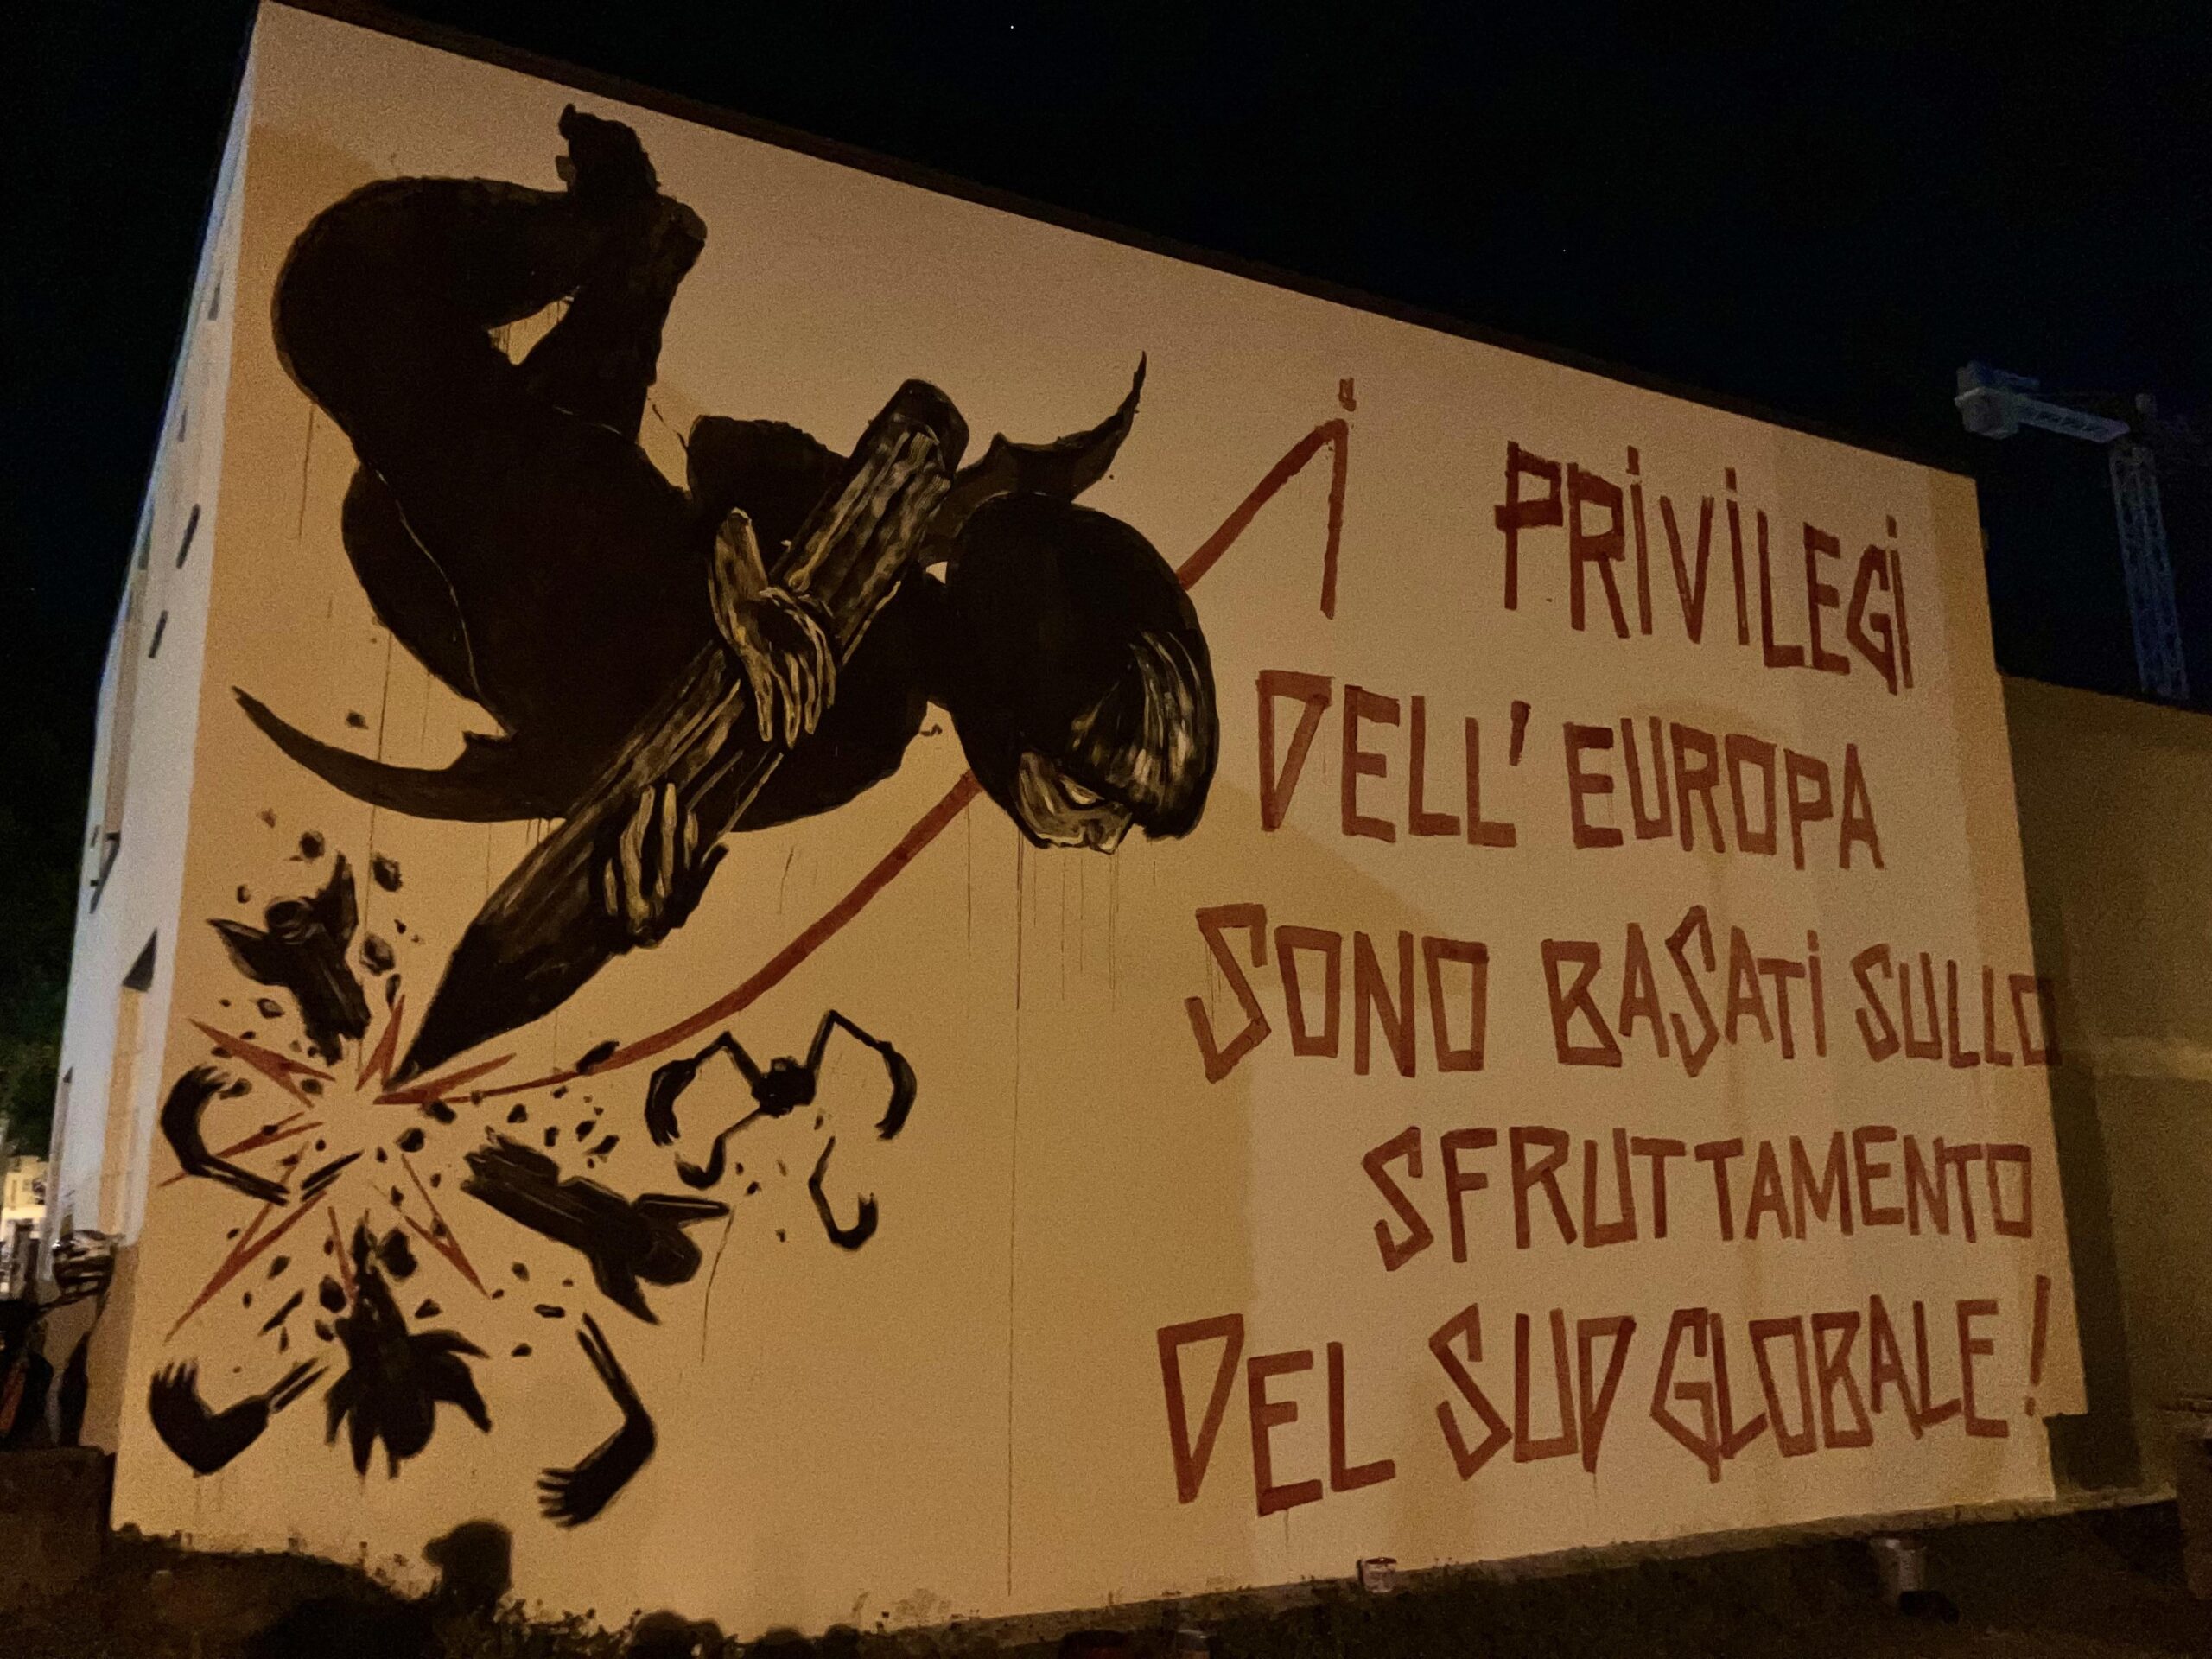 I PRIVILEGI
DELL'EUROPA
SONO BASATI SULLO
SFRUTTAMENTO
DEL SUD GLOBALE!